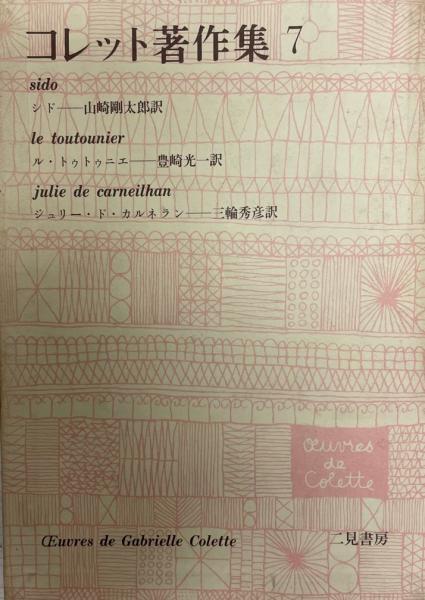 コレット著作集 7
sido
シド——山崎剛太郎訳
le toutounier
ル・トゥトゥニエ——豊崎光一訳
julie de carneilhan
ジュリー・ド・カルネラン——三輪秀彦訳
Œuvres
de
Colette
Œuvres de Gabrielle Colette
二見書房